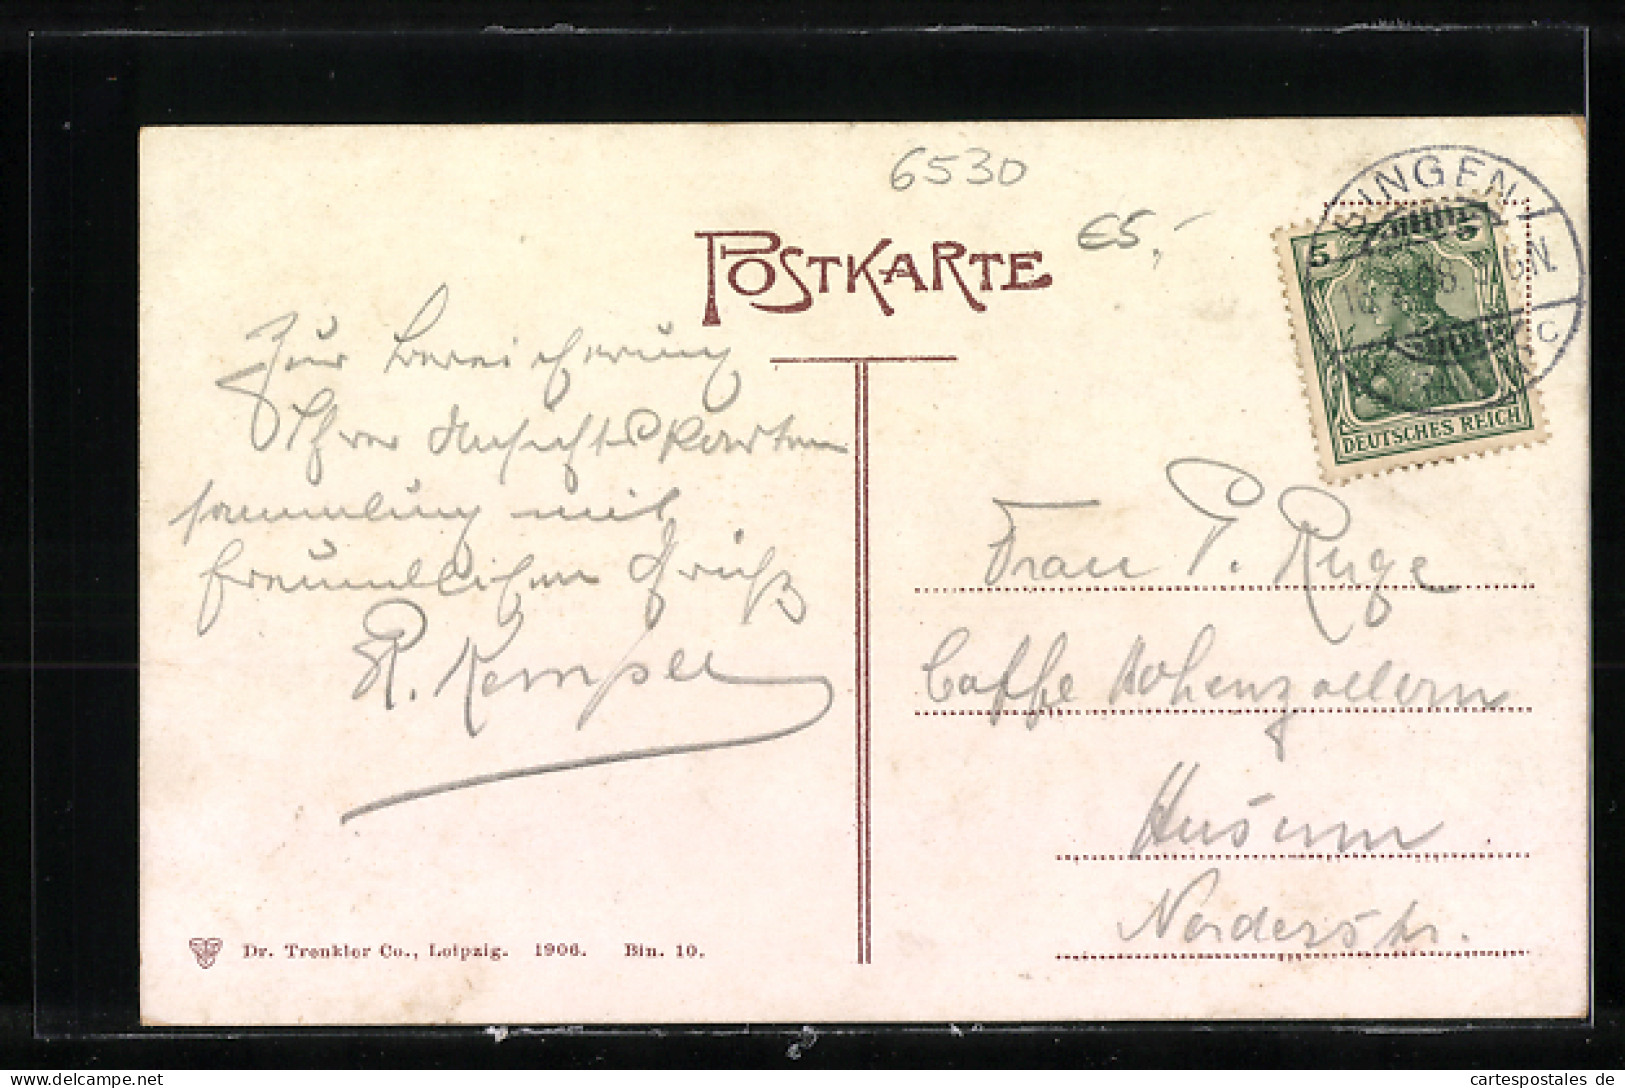 6530
€5,-
POSTKARTE
BINGEN
08. N
C
5 5
DEUTSCHES REICH
Zur Bereicherung
Ihrer Ansichtskarten
sammlung mit
freundlichem Gruß
R. Kemper
Frau P. Ruge
Caffe Hohenzollern
Husum.
Norderstr.
Dr. Trenkler Co., Leipzig. 1906. Bin. 10.
cartespostales de